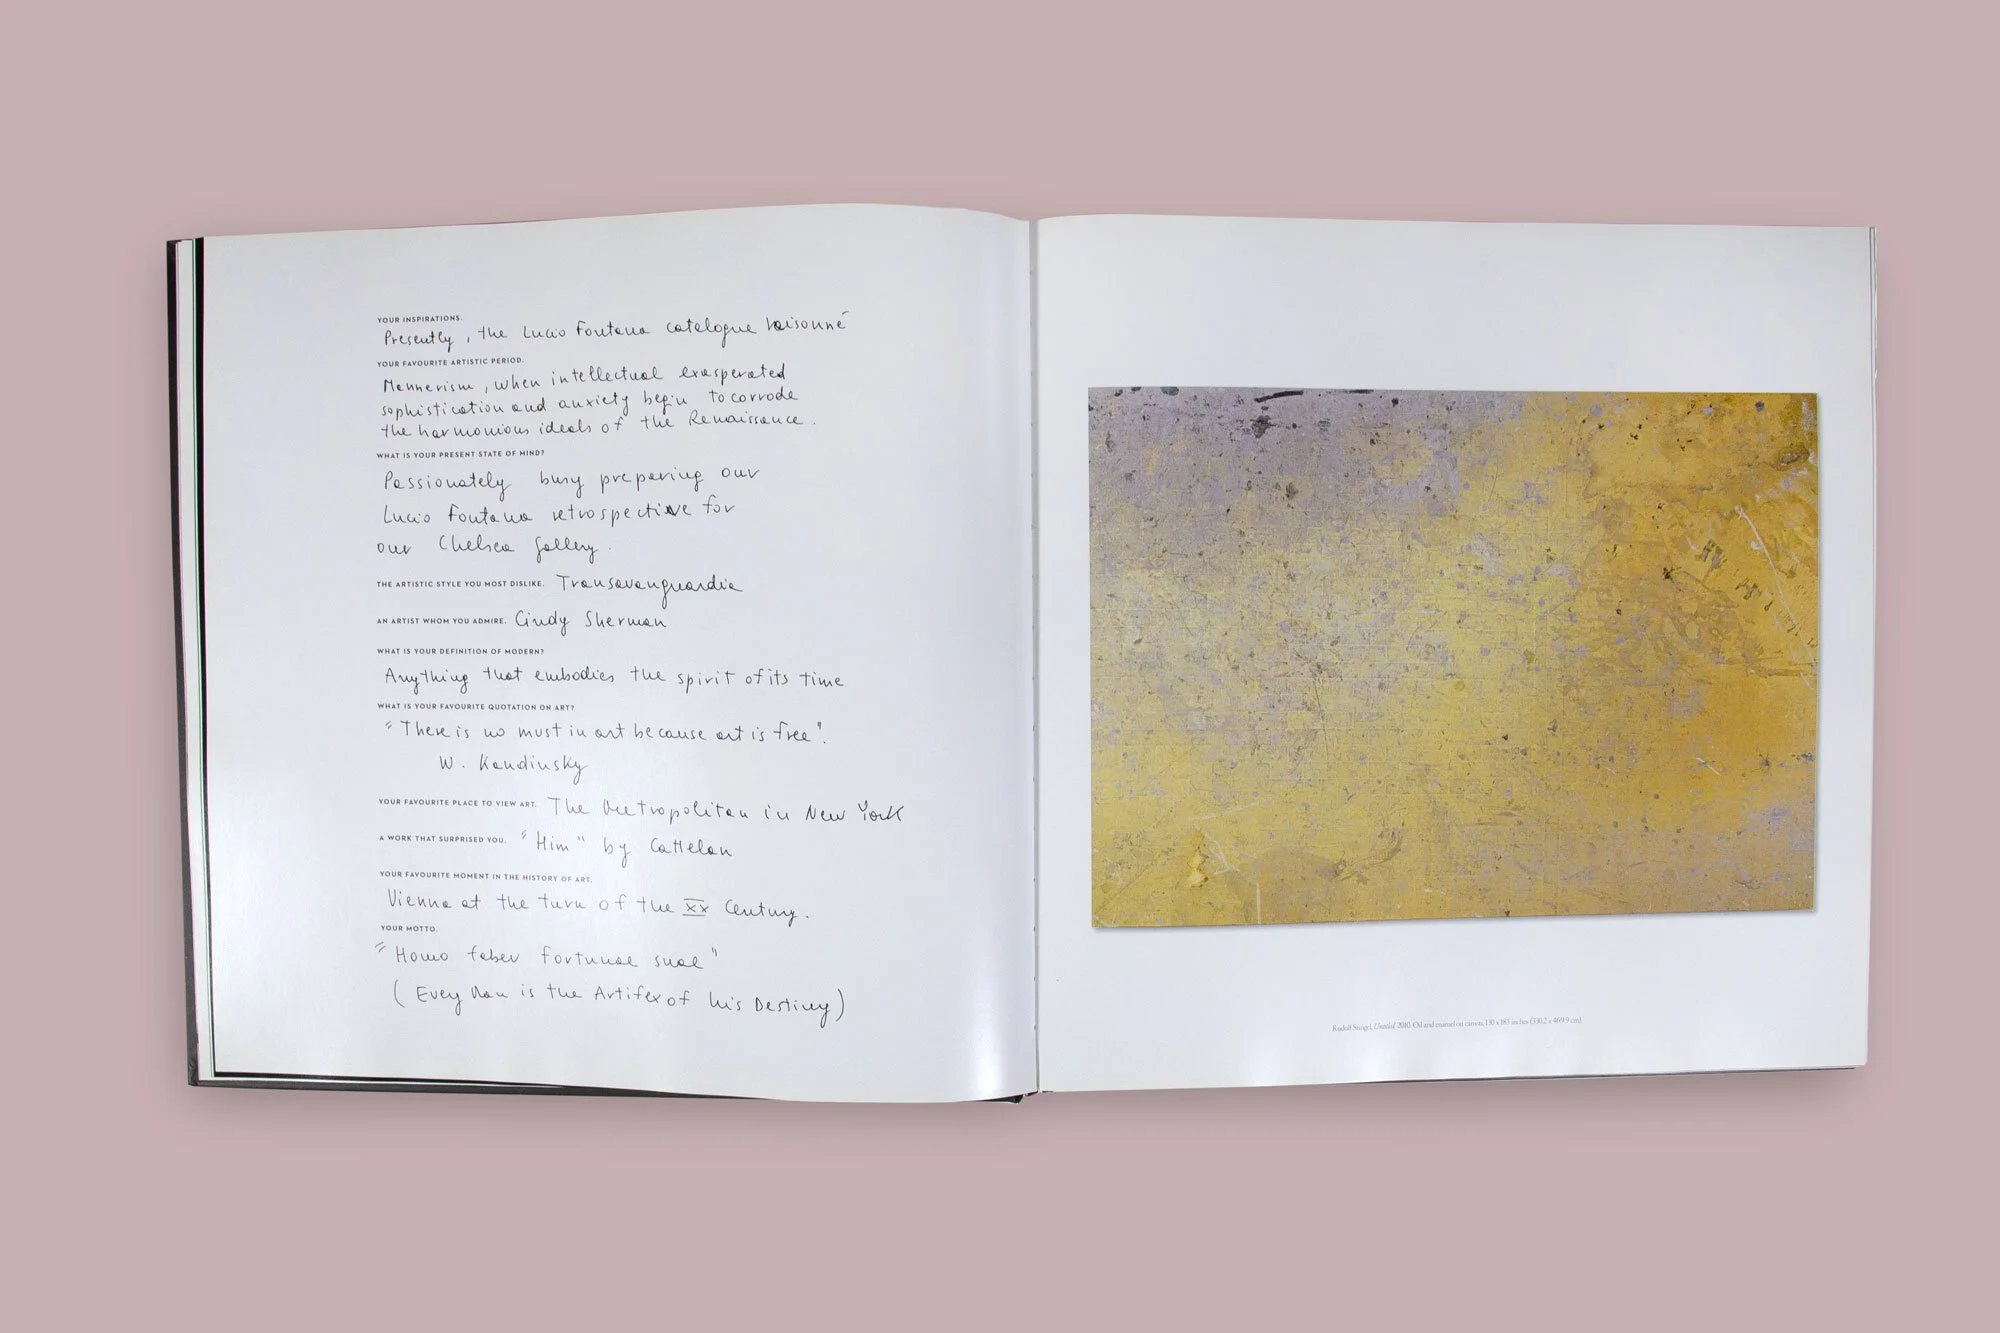 YOUR INSPIRATIONS.
Presently, the Lucio Fontana catalogue raisonné
YOUR FAVOURITE ARTISTIC PERIOD.
Mannerism, when intellectual exasperated
sophistication and anxiety begin to corrode
the harmonious ideals of the Renaissance.
WHAT IS YOUR PRESENT STATE OF MIND?
Passionately busy preparing our
Lucio Fontana retrospective for
our Chelsea gallery.
THE ARTISTIC STYLE YOU MOST DISLIKE. Transavanguardia
AN ARTIST WHOM YOU ADMIRE. Cindy Sherman
WHAT IS YOUR DEFINITION OF MODERN?
Anything that embodies the spirit of its time
WHAT IS YOUR FAVOURITE QUOTATION ON ART?
"There is no must in art because art is free".
W. Kandinsky
YOUR FAVOURITE PLACE TO VIEW ART. The Metropolitan in New York
A WORK THAT SURPRISED YOU. "Him" by Cattelan
YOUR FAVOURITE MOMENT IN THE HISTORY OF ART.
Vienna at the turn of the XX Century.
YOUR MOTTO.
"Homo faber fortunae suae"
(Every Man is the Artifex of his Destiny)
Rudolf Stingel, Untitled, 2010. Oil and enamel on canvas, 130 x 185 inches (330.2 x 469.9 cm)